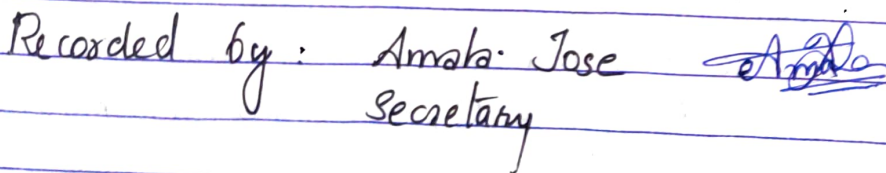 Recorded by: Amala Jose Amala
Secretary